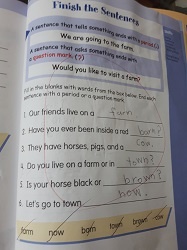 Finish the Sentences
A sentence that tells something ends with a period (.)
We are going to the farm.
A sentence that asks something ends with
a question mark. (?)
Would you like to visit a farm?
Fill in the blanks with words from the box below. End each
sentence with a period or a question mark.
1. Our friends live on a farm
2. Have you ever been inside a red barn?
3. They have horses, pigs, and a cow.
4. Do you live on a farm or in town?
5. Is your horse black or brown?
6. Let's go to town now.
farm now barn town brown cow